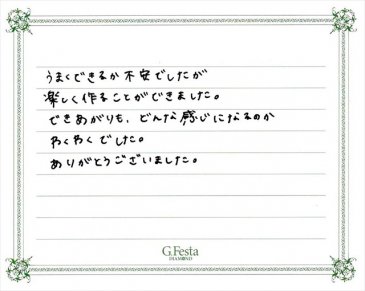 うまくできるか不安でしたが
楽しく作ることができました。
できあがりも、どんな感じになるのか
わくわくでした。
ありがとうございました。
G.Festa
DIAMOND